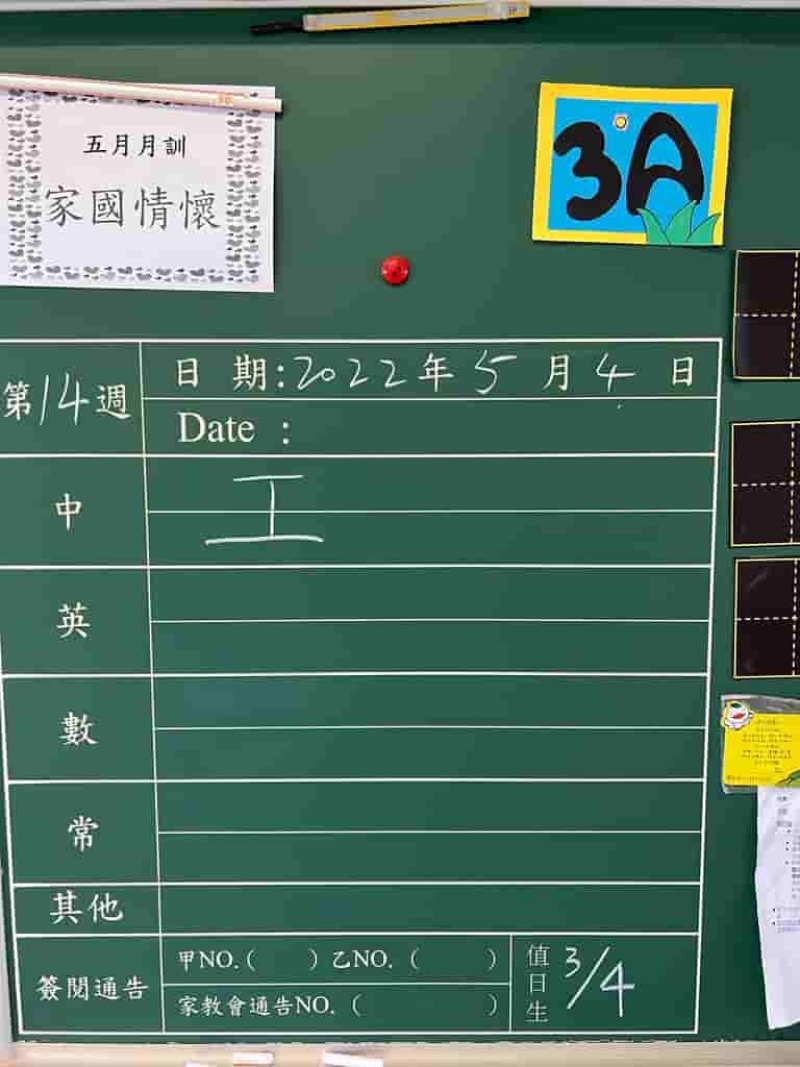 五月月訓
家國情懷
3A
第14週
日 期:2022年5月4日
Date :
中
工
英
數
常
其他
簽閱通告
甲NO.( )乙NO. ( )
家教會通告NO. ( )
值日生
3/4